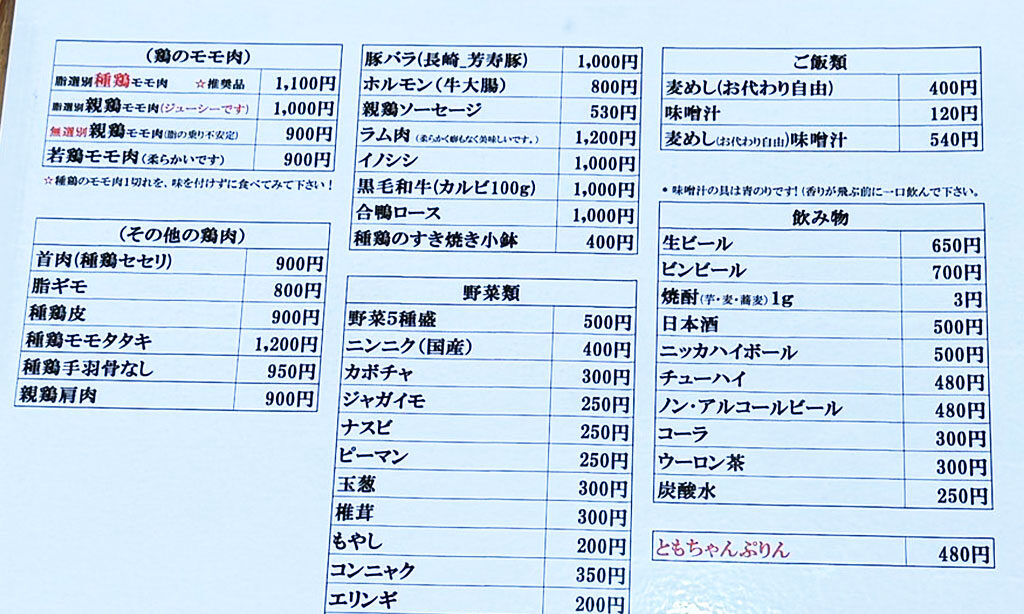 (鶏のモモ肉)
脂選別種鶏モモ肉 ☆推奨品 1,100円
脂選別親鶏モモ肉(ジューシーです) 1,000円
無選別親鶏モモ肉(脂の乗り不安定) 900円
若鶏モモ肉(柔らかいです) 900円
☆種鶏のモモ肉1切れを、味を付けずに食べてみて下さい！
(その他の鶏肉)
首肉(種鶏セセリ) 900円
脂ギモ 800円
種鶏皮 900円
種鶏モモタタキ 1,200円
種鶏手羽骨なし 950円
親鶏肩肉 900円
豚バラ(長崎_芳寿豚) 1,000円
ホルモン(牛大腸) 800円
親鶏ソーセージ 530円
ラム肉(柔らかく癖もなく美味しいです。) 1,200円
イノシシ 1,000円
黒毛和牛(カルビ100g) 1,000円
合鴨ロース 1,000円
種鶏のすき焼き小鉢 400円
野菜類
野菜5種盛 500円
ニンニク(国産) 400円
カボチャ 300円
ジャガイモ 250円
ナスビ 250円
ピーマン 250円
玉葱 300円
椎茸 300円
もやし 200円
コンニャク 350円
エリンギ 200円
ご飯類
麦めし(お代わり自由) 400円
味噌汁 120円
麦めし(お代わり自由)味噌汁 540円
* 味噌汁の具は青のりです！(香りが飛ぶ前に一口飲んで下さい。
飲み物
生ビール 650円
ビンビール 700円
焼酎(芋・麦・蕎麦)1g 3円
日本酒 500円
ニッカハイボール 500円
チューハイ 480円
ノン・アルコールビール 480円
コーラ 300円
ウーロン茶 300円
炭酸水 250円
ともちゃんぷりん 480円